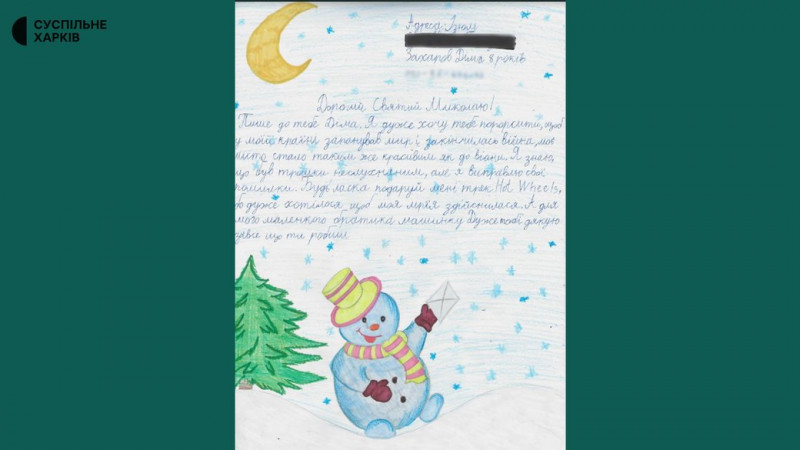 СУСПІЛЬНЕ
ХАРКІВ
Адреса: Ізюм
Захаров Діма 8 років
Дорогий Святий Миколаю!
Пише до тебе Діма. Я дуже хочу тебе попросити, щоб
у моїй країні запанував мир і закінчилась війна, моє
місто стало таким же красивим як до війни. Я знаю,
що був трошки неслухняним, але я виправлю свої
помилки. Будь ласка подаруй мені трек Hot Wheels,
дуже хотілося щоб моя мрія здійснилася. А для
мого маленького братика машинку Дуже тобі дякую
за все що ти робиш.